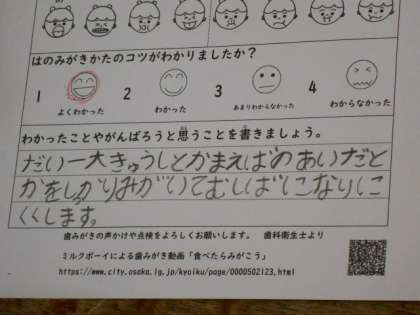 はのみがきかたのコツがわかりましたか？
1 2 3 4
よくわかった わかった あまりわからなかった わからなかった
わかったことやがんばろうと思うことを書きましょう。
だい一大きゅうしとかまえばのあいだと
かをしっかりみがいてむしばになりに
くくします。
歯みがきの声かけや点検をよろしくお願いします。 歯科衛生士より
ミルクボーイによる歯みがき動画「食べたらみがこう」
https://www.city.osaka.lg.jp/kyoiku/page/0000502123.html